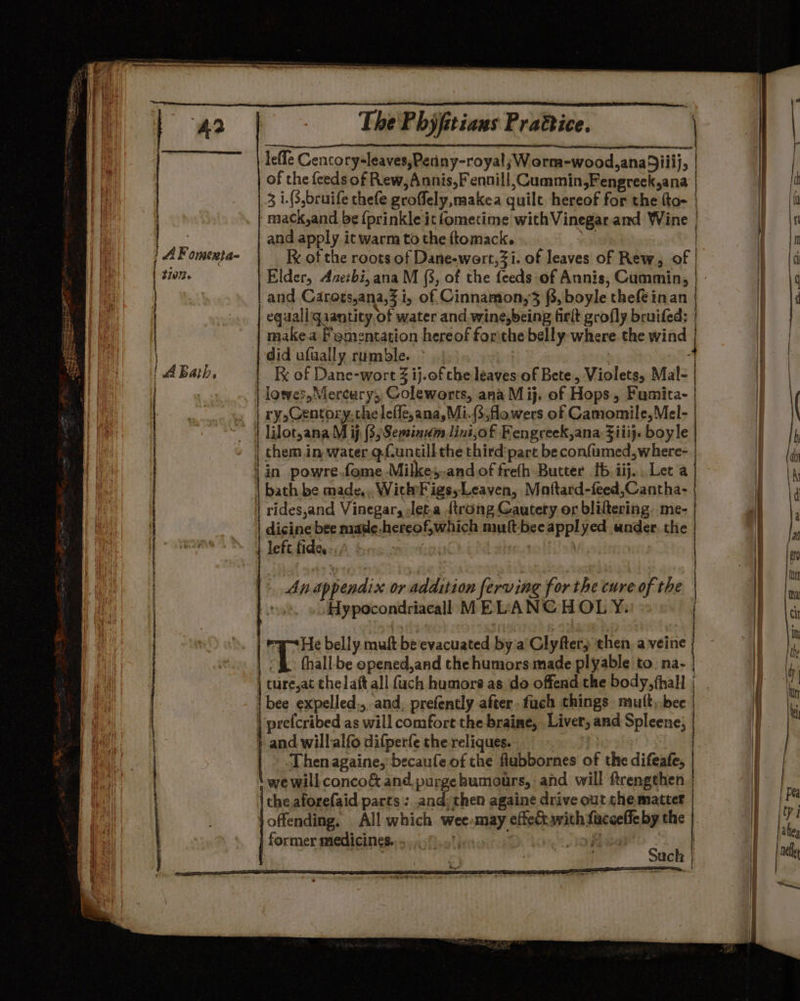 42
The Phyſitians Practice.
leſſe Centory-leaves, Penny-royal, Worm-wood, ana ʒiiij,
of the ſeeds of Rew, Annis, Fennill, Cummin, Fengreek, ana
ʒ i.ſs, bruiſe theſe groſſely, make a quilt hereof for the ſto-
mack, and be ſprinkle it ſometime with Vinegar and Wine
and apply it warm to the ſtomack.
A Fomenta-
tion.
℞ of the roots of Dane-wort, ℥i. of leaves of Rew, of
Elder, Anethi, ana M ſs, of the ſeeds of Annis, Cummin,
and Carots, ana, ℥ i, of Cinnamon, ʒ ſs, boyle theſe in an
equall quantity of water and wine, being firſt groſly bruiſed:
make a Fomentation hereof for the belly where the wind
did uſually rumble.
A Bath,
℞ of Dane-wort ℥ ij. of the leaves of Bete, Violets, Mal-
lowes, Mercury, Coleworts, ana M ij. of Hops, Fumita-
ry, Centory, the leſſe, ana, Mi. ſs, flowers of Camomile, Mel-
lilot, ana M ij ſs, Seminum lini, of Fengreek, ana ℥iiij. boyle
them in water q.ſ. untill the third part be conſumed, where-
in powre ſome Milke, and of freſh Butter ℔. iij. Let a
bath be made, With Figs, Leaven, Muſtard-ſeed, Cantha-
rides, and Vinegar, let a ſtrong Cautery or bliſtering me-
dicine bee made hereof, which muſt bee applyed under the
left ſide.
An appendix or addition ſerving for the cure of the
Hypocondriacall MELANCHOLY.
THe belly muſt be evacuated by a Clyſter, then a veine
ſhall be opened, and the humors made plyable to na-
ture, at the laſt all ſuch humors as do offend the body, ſhall
bee expelled, and, preſently after ſuch things muſt, bee
preſcribed as will comfort the braine, Liver, and Spleene,
and will alſo diſperſe the reliques.
Then againe, becauſe of the ſtubbornes of the diſeaſe,
we will concoct and purge humours, and will ſtrengthen
the aforeſaid parts: and then againe drive out the matter
offending. All which wee may effect with ſucceſſe by the
former medicines.
Such